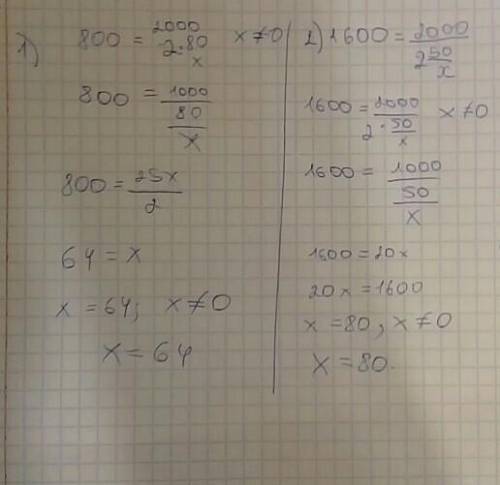 1) 800 = 2000 / 2·80/x x≠0
800 = 1000 / 80/x
800 = 25x/2
64 = x
x = 64; x≠0
x = 64
2) 1600 = 2000 / 2 50/x
1600 = 2000 / 2·50/x x≠0
1600 = 1000 / 50/x
1600 = 20x
20x = 1600
x = 80, x≠0
x = 80.